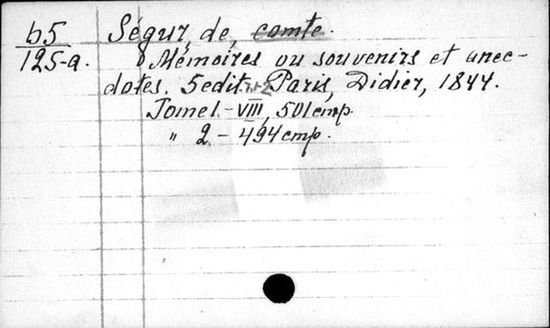 b5
125-a.
Ségur, de, comte.
Mémoires ou souvenirs et anec-
dotes. 5 edit. Paris, Didier, 1844.
Tome 1.-VIII, 501 cmp.
" 2. - 494 cmp.